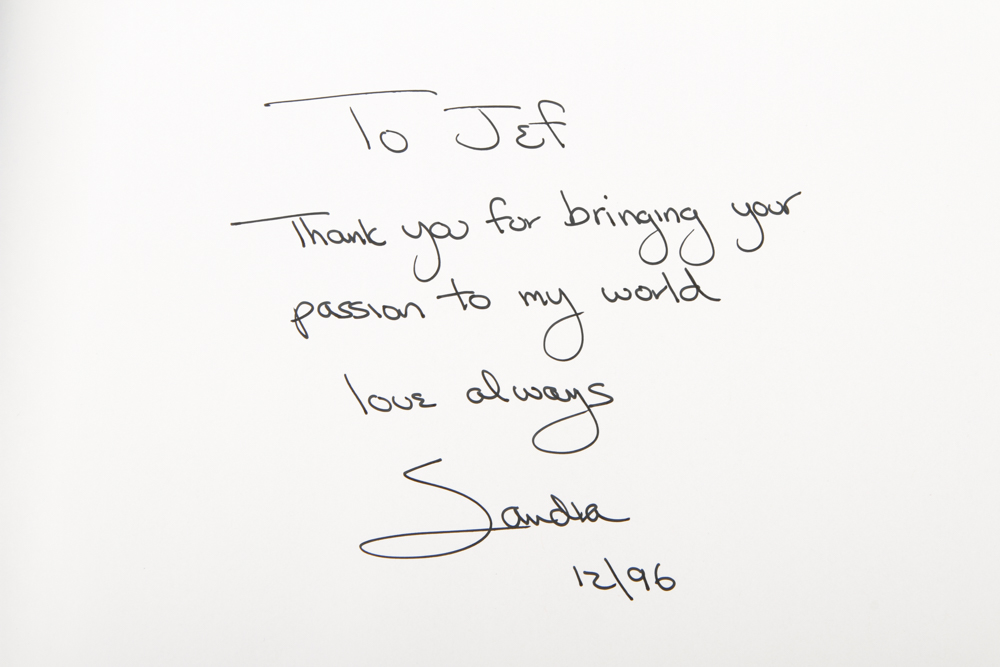 To Jef
Thank you for bringing your
passion to my world
love always
Sandra
12/96